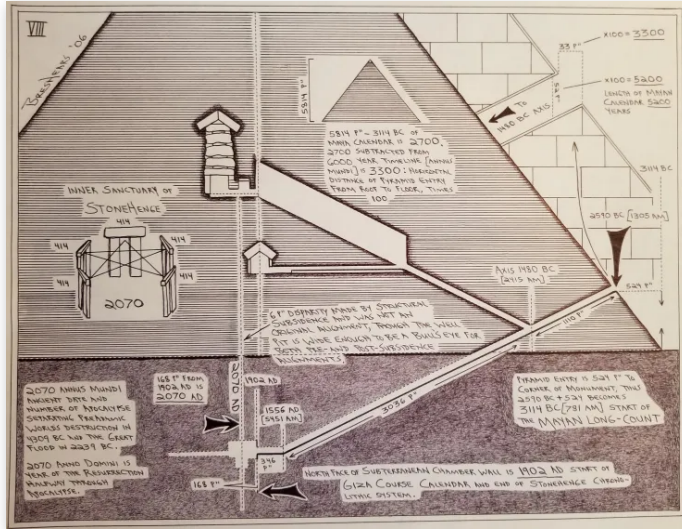 VIII
BRESHEARS '06
5814 P"
33 P"
52 P"
x100 = 3300
x100 = 5200
LENGTH OF MAYAN
CALENDAR 5200
YEARS
TO
1480 BC AXIS
3114 BC
5814 P" - 3114 BC OF
MAYA CALENDAR IS 2700.
2700 SUBTRACTED FROM
6000 YEAR TIMELINE [ANNUS
MUNDI] IS 3300: HORIZONTAL
DISTANCE OF PYRAMID ENTRY
FROM ROOF TO FLOOR, TIMES
100
2590 BC [1305 AM]
INNER SANCTUARY OF
STONEHENGE
414
414
414
414
414
2070
AXIS 1480 BC
[2415 AM]
524 P"
1110 P"
6 P" DISPARITY MADE BY STRUCTURAL
SUBSIDENCE AND WAS NOT AN
ORIGINAL ALIGNMENT, THOUGH THE WELL
PIT IS WIDE ENOUGH TO BE A BULLSEYE FOR
BOTH PRE- AND POST-SUBSIDENCE
ALIGNMENTS
2070 AD
168 P" FROM
1902 AD IS
2070 AD
1902 AD
1556 AD
[5451 AM]
3036 P"
346
P"
168 P"
2070 ANNUS MUNDI
ANCIENT DATE AND
NUMBER OF APOCALYPSE
SEPARATING PREADAMIC
WORLDS DESTRUCTION IN
4309 BC AND THE GREAT
FLOOD IN 2239 BC.
2070 ANNO DOMINI IS
YEAR OF THE RESURRECTION
HALFWAY THROUGH
APOCALYPSE.
PYRAMID ENTRY IS 524 P" TO
CORNER OF MONUMENT, THUS
2590 BC + 524 BECOMES
3114 BC [781 AM] START OF
THE MAYAN LONG-COUNT
NORTH FACE OF SUBTERRANEAN CHAMBER WALL IS 1902 AD START OF
GIZA COURSE CALENDAR AND END OF STONEHENGE CHRONO-
LITHIC SYSTEM.